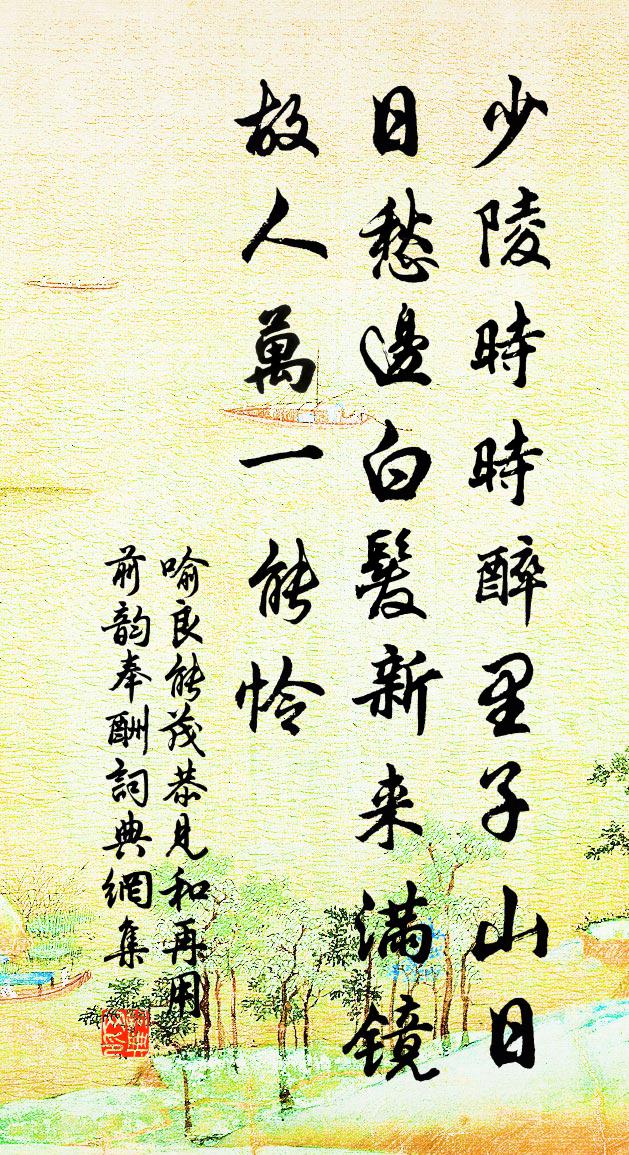 少陵時時醉里子山日
日愁邊白髮新来满鏡
故人萬一能怜
喻良能茂恭見和再用
前韵奉酬詞典網集